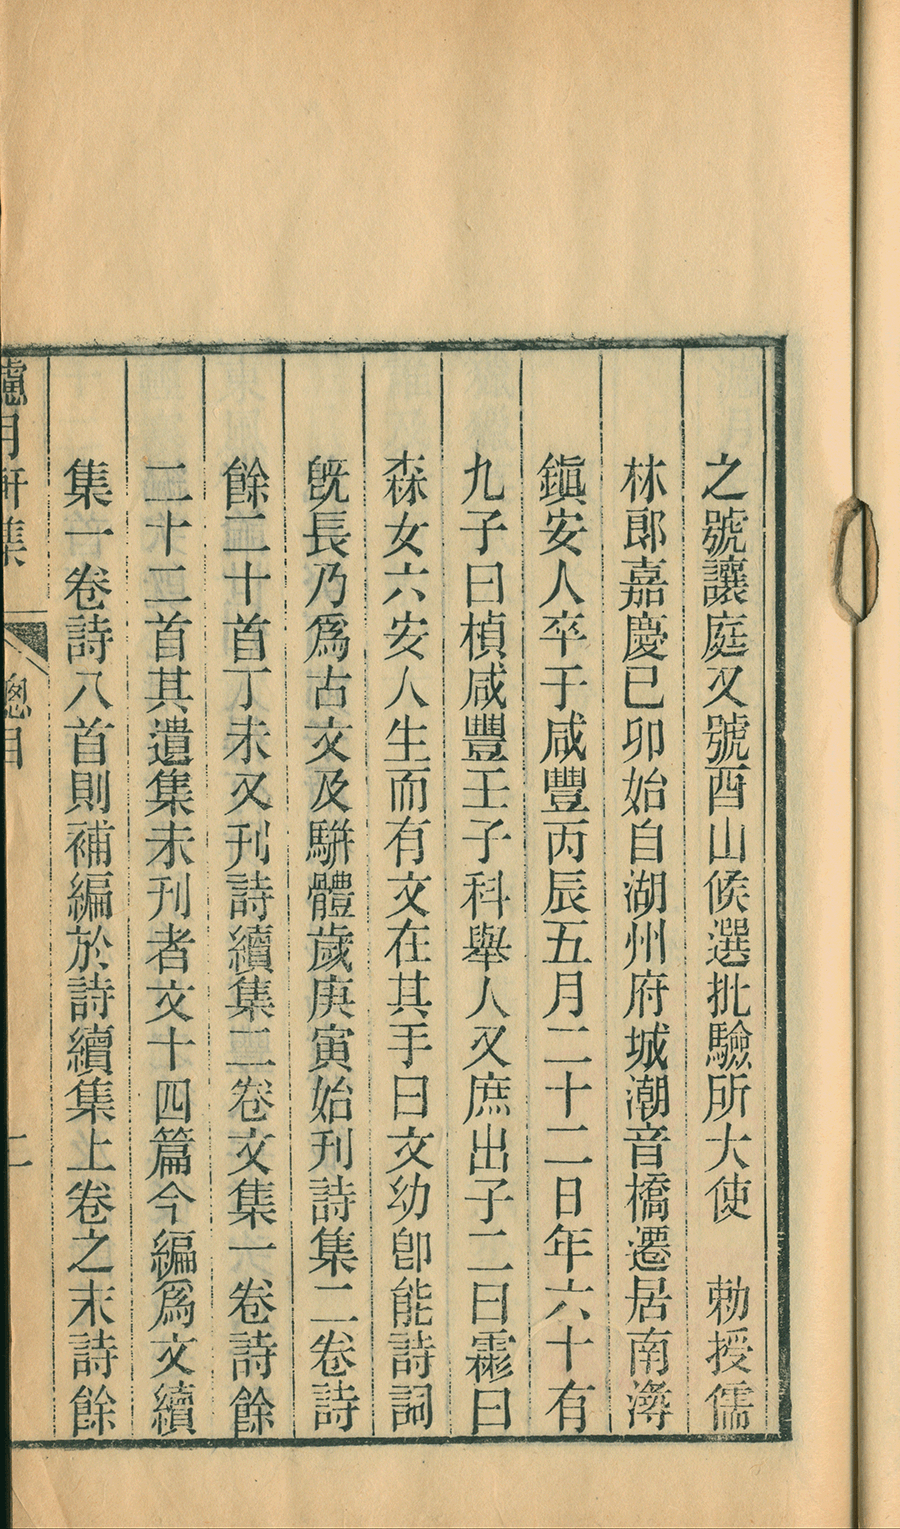 之號讓庭又號酉山候選批驗所大使　勅授儒
林郎嘉慶已卯始自湖州府城潮音橋遷居南潯
鎭安人卒于咸豐丙辰五月二十二日年六十有
九子曰楨咸豐壬子科舉人又庶出子二曰霖曰
森女六安人生而有文在其手曰文幼卽能詩詞
旣長乃爲古文及駢體歲庚寅始刊詩集二卷詩
餘二十首丁未又刊詩續集二卷文集一卷詩餘
二十二首其遺集未刊者文十四篇今編爲文續
集一卷詩八首則補編於詩續集上卷之末詩餘
月軒集　總目　二